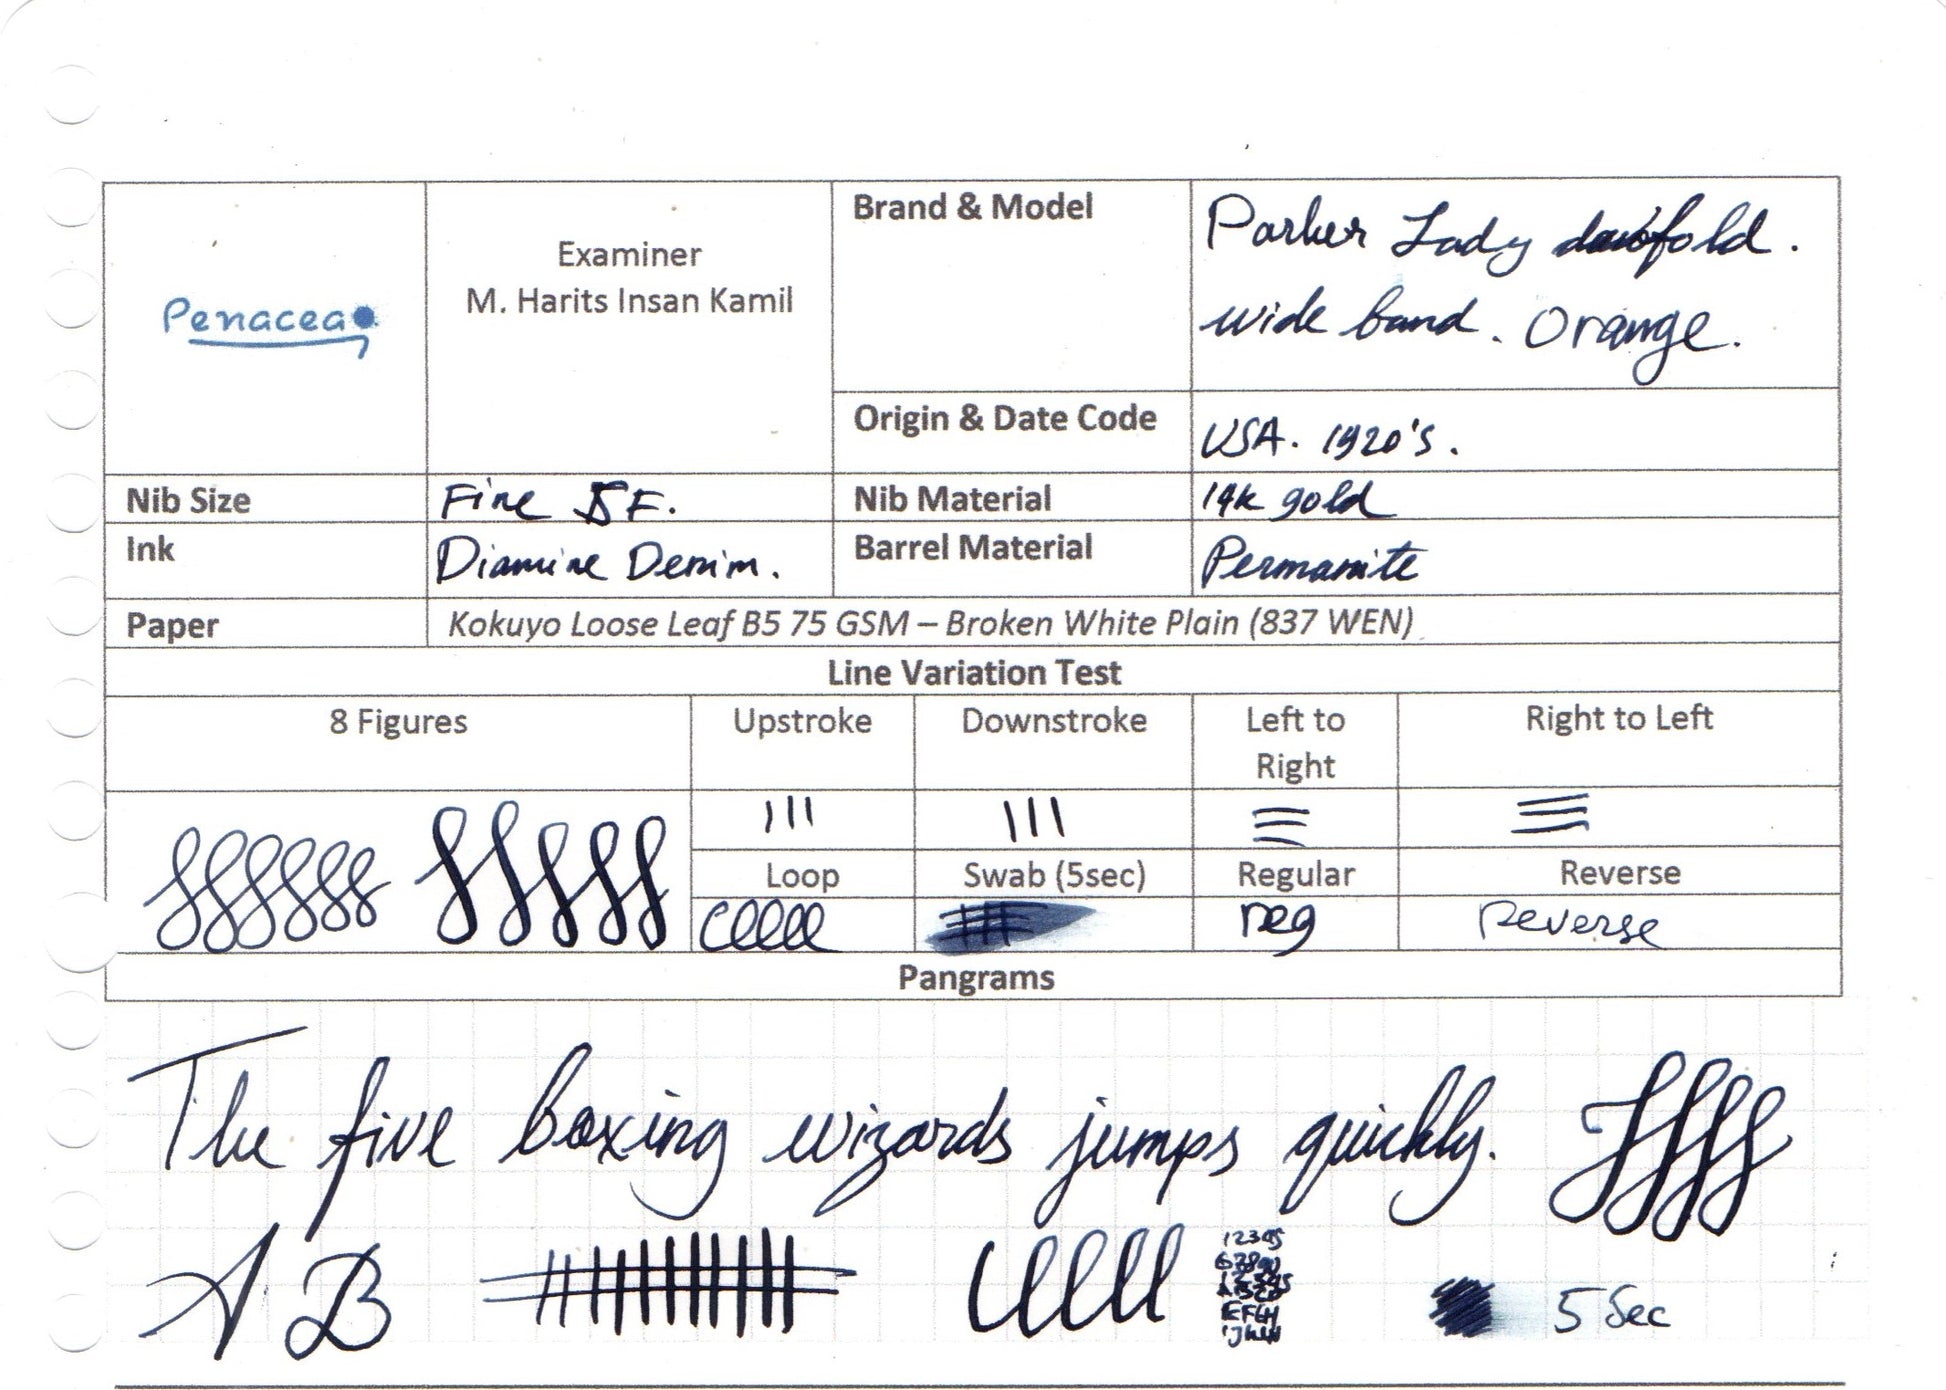 Penacea
Examiner
M. Harits Insan Kamil
Brand & Model
Parker Lady duofold.
wide band. Orange.
Origin & Date Code
USA. 1920's.
Nib Size
Fine SF.
Nib Material
14k gold
Ink
Diamine Denim.
Barrel Material
Permanite
Paper
Kokuyo Loose Leaf B5 75 GSM – Broken White Plain (837 WEN)
Line Variation Test
8 Figures
Upstroke
Downstroke
Left to
Right
Right to Left
Loop
Swab (5sec)
Regular
Reverse
reg
Reverse
Pangrams
The five boxing wizards jumps quickly.
A B
12345
67890
EFGH
IJKLM
5 Sec